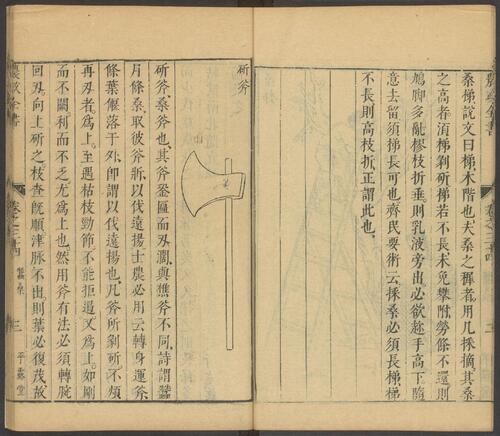 桑梯說文曰梯木階也夫桑之穉者用几採摘其桑
之高者須梯剝斫梯若不長未免攀附勞條不還則
鳩脚多亂樛枝折垂則乳液旁出必欲趁手高下隨
意去留須梯長可也齊民要術云採桑必須長梯梯
不長則高枝折正謂此也
斫斧
斫斧桑斧也其斧銎匾而刃闊與樵斧不同詩謂蠶
月條桑取彼斧斨以伐遠揚士農必用云轉身運斧
條葉偃落于外即謂以伐遠揚也凡斧所剝斫不煩
再刃者爲上至遇枯枝勁節不能拒遏又爲上如剛
而不闕利而不乏尤爲上也然用斧有法必須轉腕
回刃向上斫之枝查旣順津脉不出則葉必復茂故
農政全書
卷之三十四
蠶桑
三
平露堂